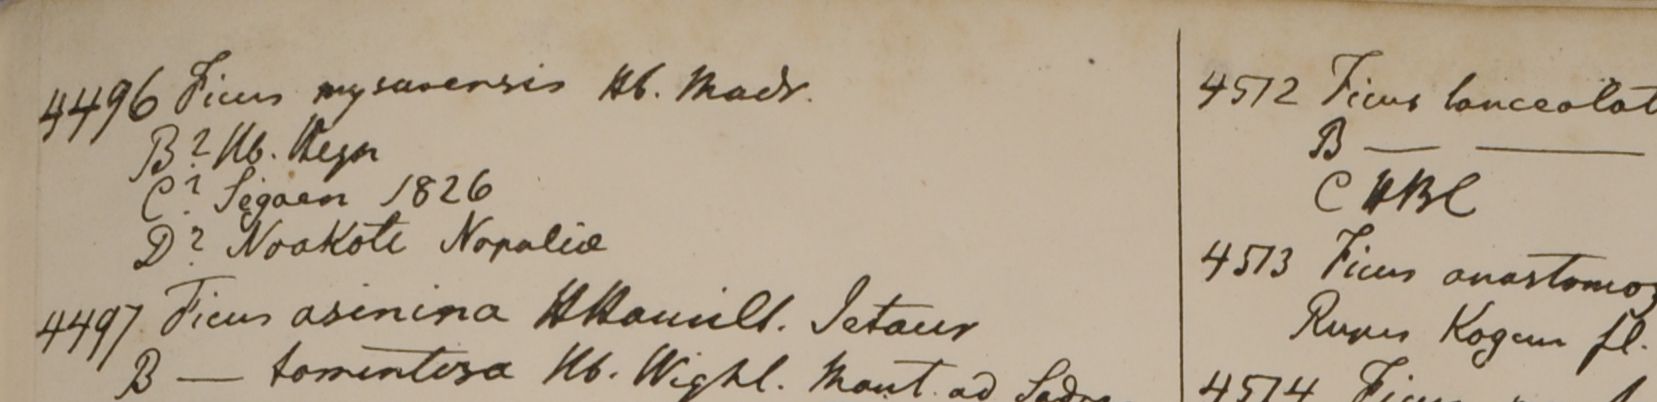 4496 Ficus mysorensis Hb. Madr.
B? Hb. Heyn
C? Segaen 1826
D? Noakote Napaliæ
4497 Ficus asinina HHamilt. Jetaur
B — tomentosa Hb. Wight. Mont. ad
4512 Ficus lanceolat
B — —
C HBC
4513 Ficus anastomoz
Kogun fl.
4514 Ficus